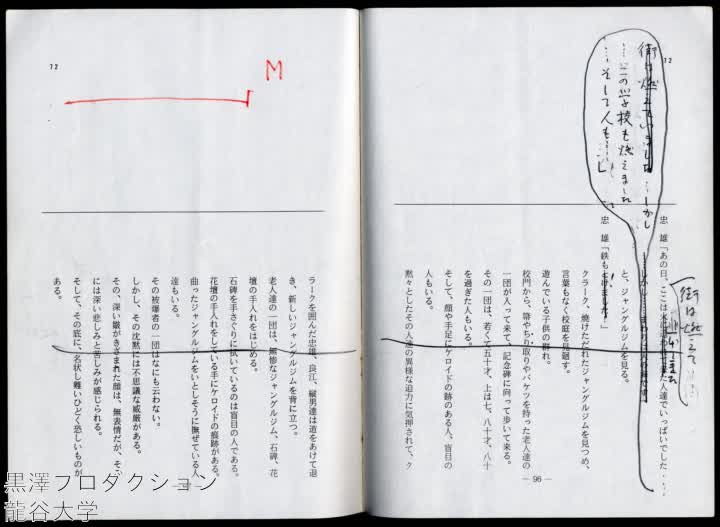 72
忠 雄「あの日、ここは水に
た人達でいっぱいでした……
と、ジャングルジムを見る。
忠 雄「鉄も
クラーク、焼けただれたジャングルジムを見つめ、
言葉もなく校庭を見廻す。
遊んでいる子供の群れ。
校門から、箒やちり取りやバケツを持った老人達の
一団が入って来て、記念碑に向って歩いて来る。
その一団は、若くて五十才、上は七、八十才、八十
を過ぎた人もいる。
そして、顔や手足にケロイドの跡のある人、盲目の
人もいる。
黙々としたその人達の異様な迫力に気押されて、ク
— 96 —
街は燃えていました……しかし
……この学校も燃えました
……そして人も……」
街は燃えて
72
M
ラークを囲んだ忠雄、良江、縦男達は道をあけて退
き、新しいジャングルジムを背に立つ。
老人達の一団は、無惨なジャングルジム、石碑、花
壇の手入れをはじめる。
石碑を手さぐりに拭いているのは盲目の人である。
花壇の手入れをしている手にケロイドの痕跡がある。
曲ったジャングルジムをいとしそうに撫ぜている人
達もいる。
その被爆者の一団はなにも云わない。
しかし、その沈黙には不思議な威厳がある。
その、深い皺がきざまれた顔は、無表情だが、そこ
には深い悲しみと苦しみが感じられる。
そして、その底に、名状し難いひどく恐しいものが
ある。
黒澤プロダクション
龍谷大学